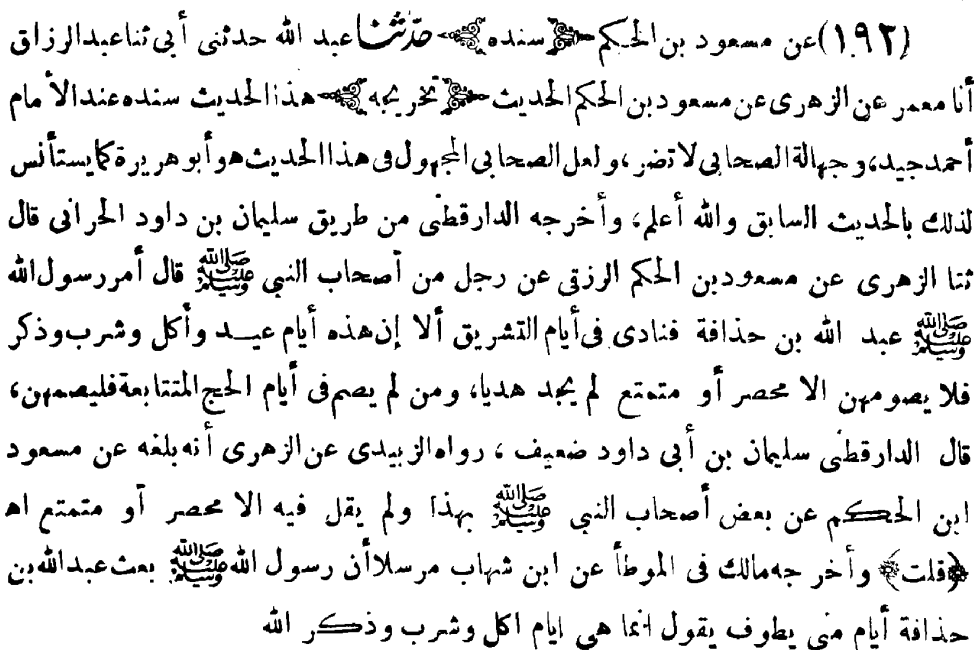 (١٩٢)عن مسعود بن الحكم ﴿سنده﴾ حدّثنا عبد الله حدثنى أبى ثنا عبد الرزاق
أنا معمر عن الزهرى عن مسعود بن الحكم الحديث ﴿تخريجه﴾ هذا الحديث سنده عند الأمام
أحمد جيد، وجهالة الصحابى لا تضر، ولعل الصحابى المجهول فى هذا الحديث هو أبو هريرة كما يستأنس
لذلك بالحديث السابق والله أعلم، وأخرجه الدارقطنى من طريق سليمان بن داود الحرانى قال
ثنا الزهرى عن مسعود بن الحكم الرزقى عن رجل من أصحاب النبى ﷺ قال أمر رسول الله
ﷺ عبد الله بن حذافة فنادى فى أيام التشريق ألا إن هذه أيام عيد وأكل وشرب وذكر
فلا يصومهن الا محصر أو متمتع لم يجد هديا، ومن لم يصم فى أيام الحج المتتابعة فليصمهن،
قال الدارقطنى سليمان بن أبى داود ضعيف، رواه الزبيدى عن الزهرى أنه بلغه عن مسعود
ابن الحكم عن بعض أصحاب النبى ﷺ بهذا ولم يقل فيه الا محصر أو متمتع اه
﴿قلت﴾ وأخرجه مالك فى الموطأ عن ابن شهاب مرسلا أن رسول الله ﷺ بعث عبد الله بن
حذافة أيام منى يطوف يقول انما هى ايام اكل وشرب وذكر الله